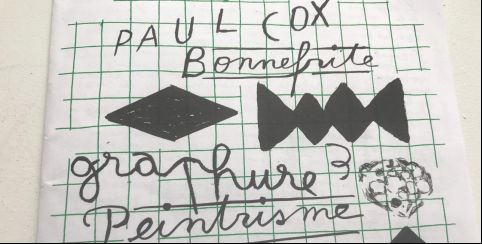 PAUL COX
Bonnefrite
graphure 3
Peintrisme